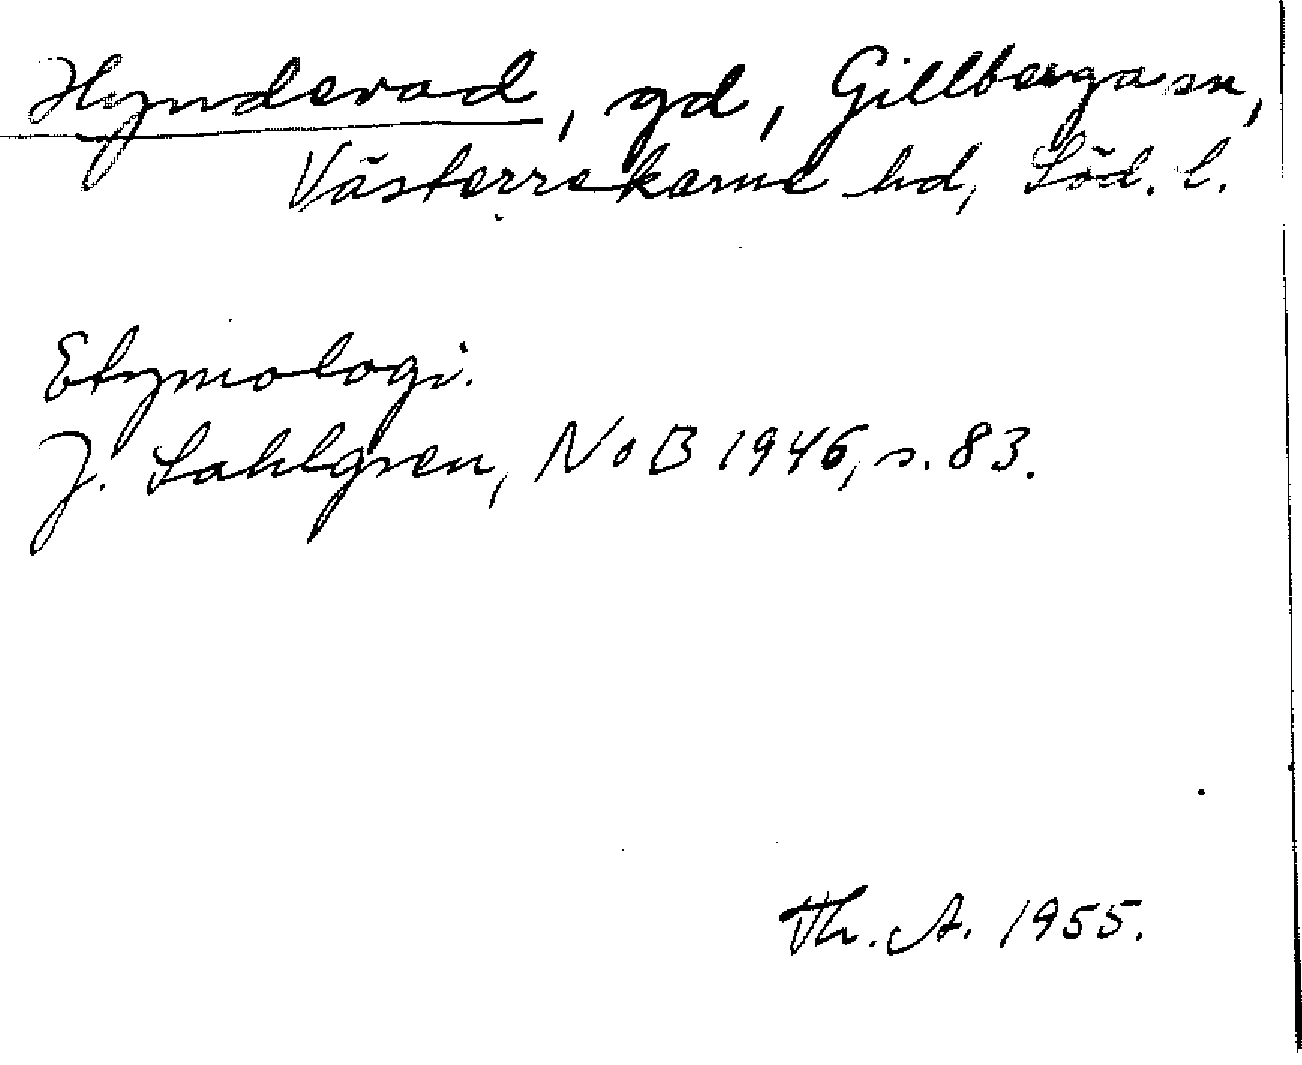 Hyndevad, gd, Gillberga sn,
Västerrekarne hd, Söd. l.
Etymologi.
J. Sahlgren, NoB 1946, s. 83.
Th. A. 1955.